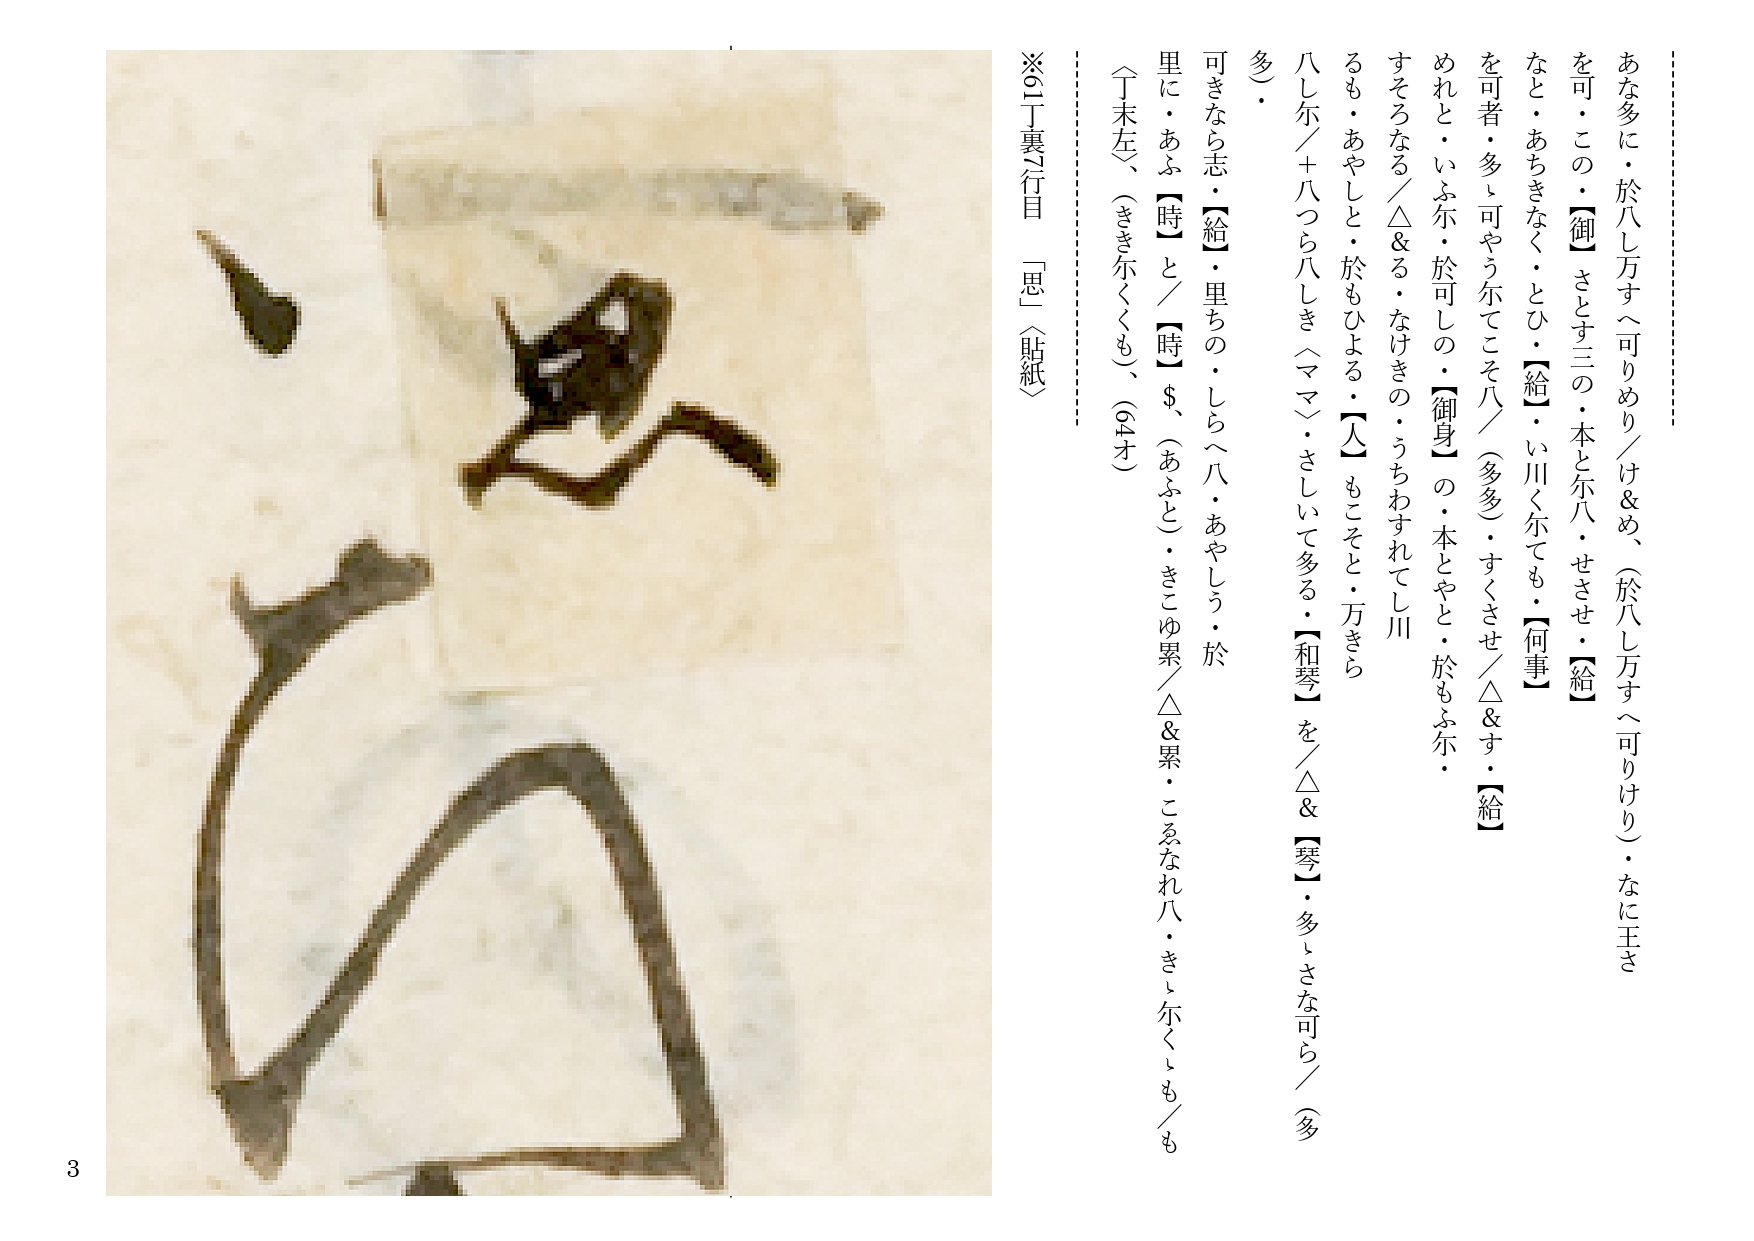 あな多に・於八し万すへ可りめり／け＆め、（於八し万すへ可りけり）・なに王さ
を可・この・【御】さとす三の・本と尓八・せさせ・【給】
なと・あちきなく・とひ・【給】・い川く尓ても・【何事】
を可者・多ゝ可やう尓てこそ八／（多多）・すくさせ／△＆す・【給】
めれと・いふ尓・於可しの・【御身】の・本とやと・於もふ尓・
すそろなる／△＆る・なけきの・うちわすれてし川
るも・あやしと・於もひよる・【人】もこそと・万きら
八し尓／＋八つら八しき〈ママ〉・さしいて多る・【和琴】を／△＆【琴】・多ゝさな可ら／（多
多）・
可きなら志・【給】・里ちの・しらへ八・あやしう・於
里に・あふ【時】と／【時】$、（あふと）・きこゆ累／△＆累・こゑなれ八・きゝ尓くゝも／も
〈丁末左〉、（きき尓くくも）、（64オ）
※61丁裏7行目　「思」〈貼紙〉
3